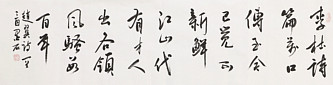 李杜詩
篇萬口
傳至今
已覺不
新鮮
江山代
有才人
出各領
風騷数
百年